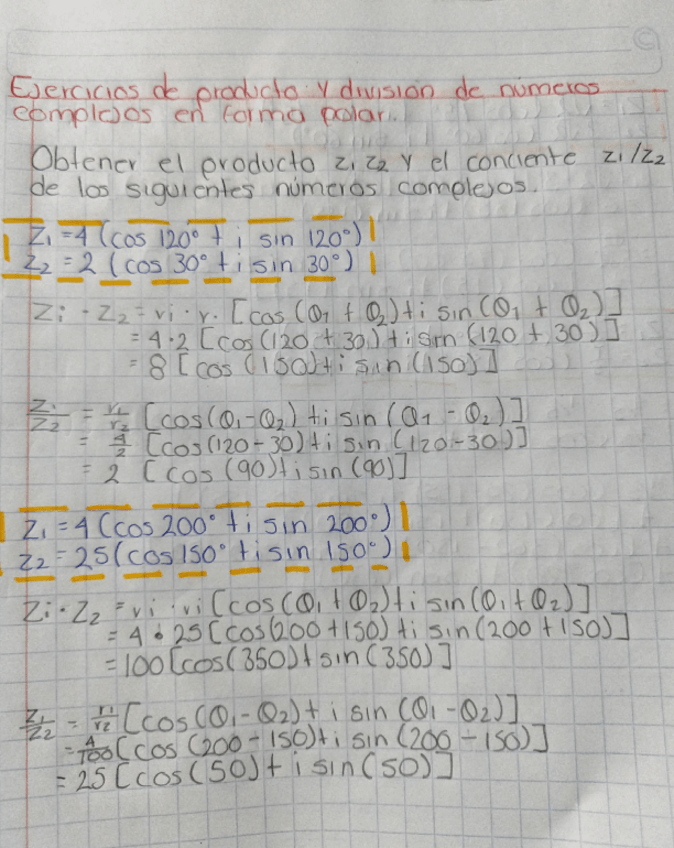 Ejercicios de producto y division de números
complejos en forma polar.
Obtener el producto z₁ z₂ y el conciente z₁/z₂
de los siguientes números complejos.
Z₁ = 4 (cos 120° + i sin 120°)
Z₂ = 2 (cos 30° + i sin 30°)
Zi · Z₂ = vi · r. [cos (θ₁ + θ₂) + i sin (θ₁ + θ₂)]
= 4·2 [cos (120 + 30) + i sin (120 + 30)]
= 8 [cos (150) + i sin (150)]
Z₁/Z₂ = r₁/r₂ [cos(θ₁-θ₂) + i sin (θ₁ - θ₂)]
= 4/2 [cos(120-30) + i sin (120-30)]
= 2 [cos (90) + i sin (90)]
Z₁ = 4 (cos 200° + i sin 200°)
Z₂ = 25 (cos 150° + i sin 150°)
Zi · Z₂ = vi · vi [cos (θ₁ + θ₂) + i sin (θ₁ + θ₂)]
= 4 · 25 [cos(200 + 150) + i sin (200 + 150)]
= 100 [cos(350) + sin (350)]
Z₁/Z₂ = r₁/r₂ [cos (θ₁-θ₂) + i sin (θ₁-θ₂)]
= 4/100 [cos (200 - 150) + i sin (200 - 150)]
= 25 [cos (50) + i sin (50)]